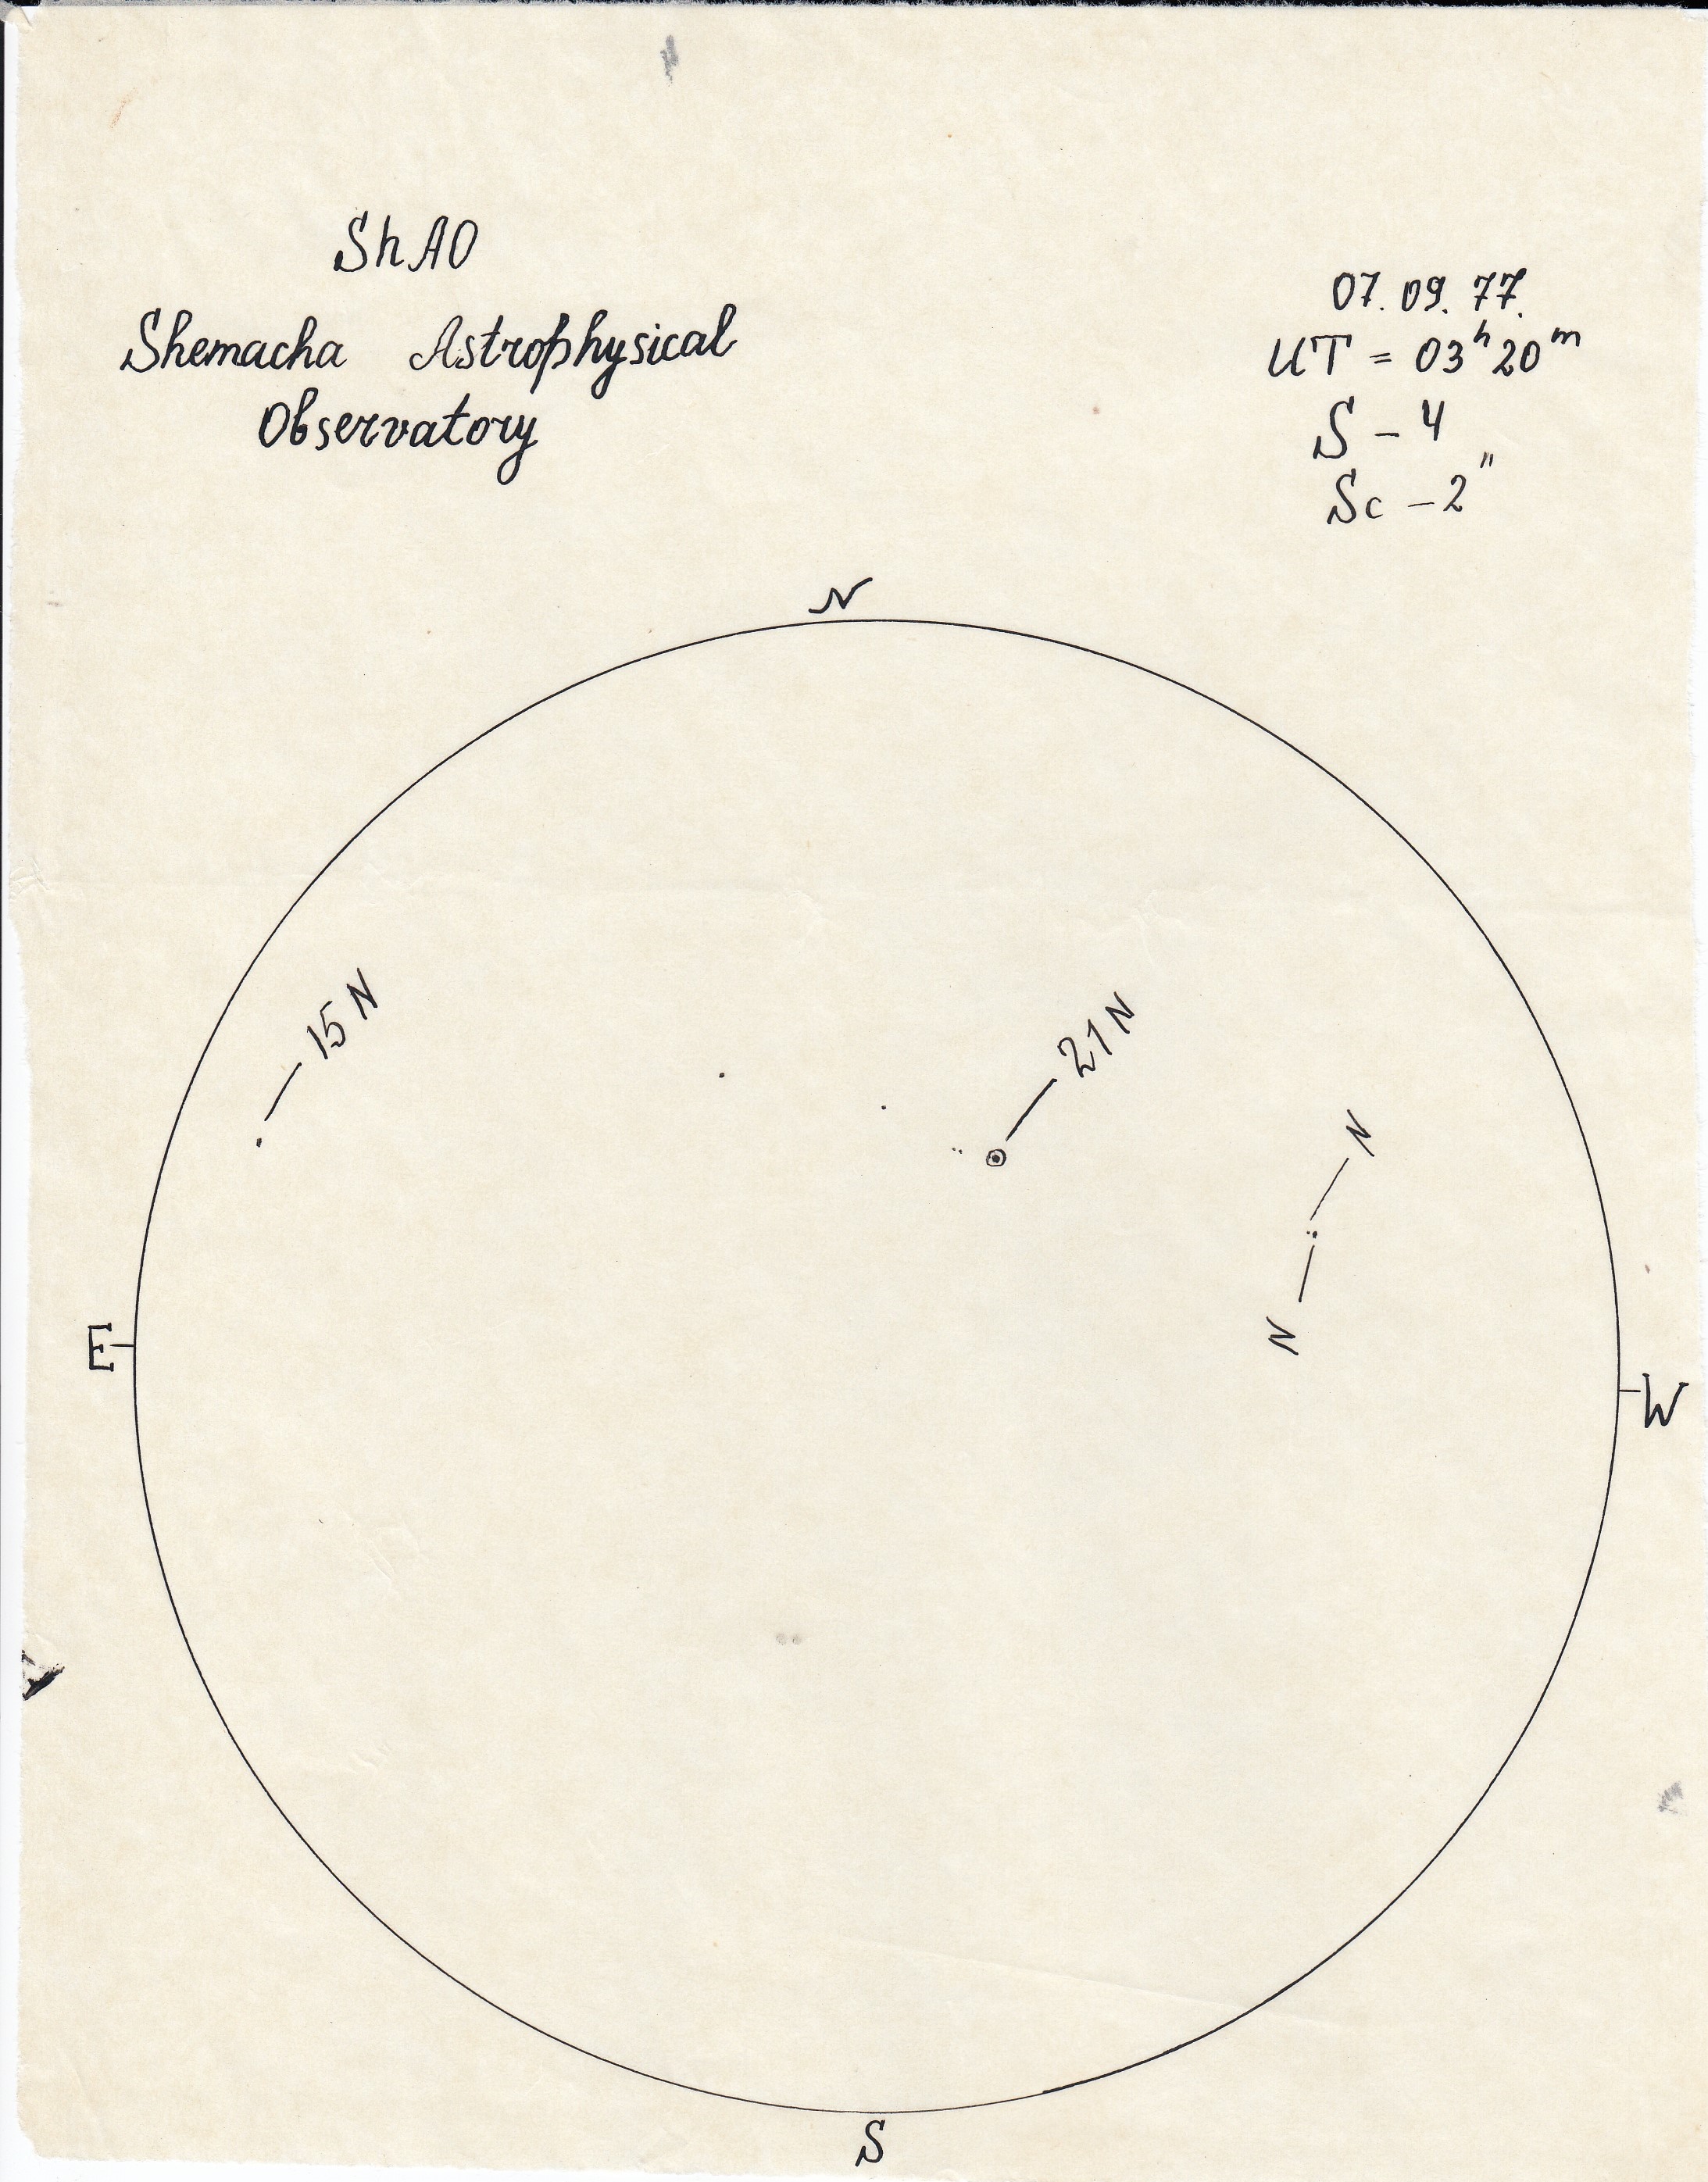 ShAO
Shemacha Astrophysical
Observatory
07.09.77.
UT = 03ʰ20ᵐ
S – 4
Sc – 2"
N
15 N
21 N
N
N
E
W
S